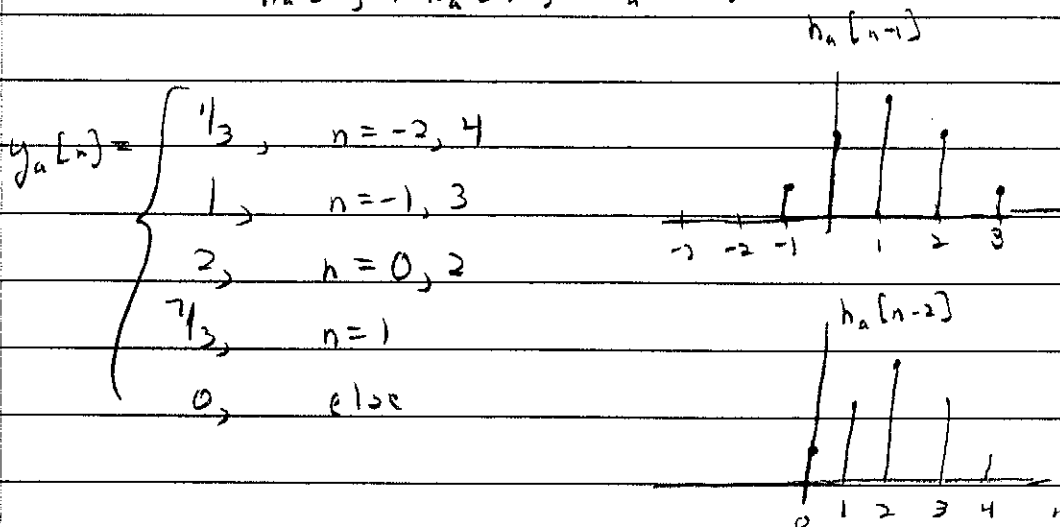 h_a[n-1]
y_a[n] = { 1/3, n = -2, 4
1, n = -1, 3
2, n = 0, 2
7/3, n = 1
0, else
-3 -2 -1 1 2 3
h_a[n-2]
0 1 2 3 4